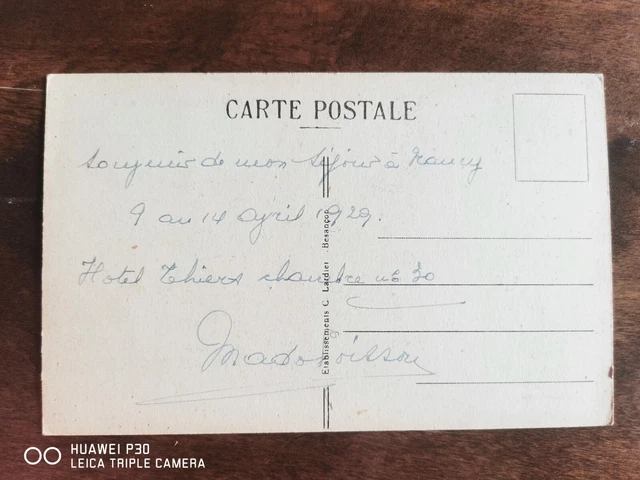 CARTE POSTALE
Souvenir de mon séjour à Nancy
9 au 14 avril 1929.
Hotel Thiers chambre no 30
Etablissements C. Lardier - Besançon
HUAWEI P30
LEICA TRIPLE CAMERA